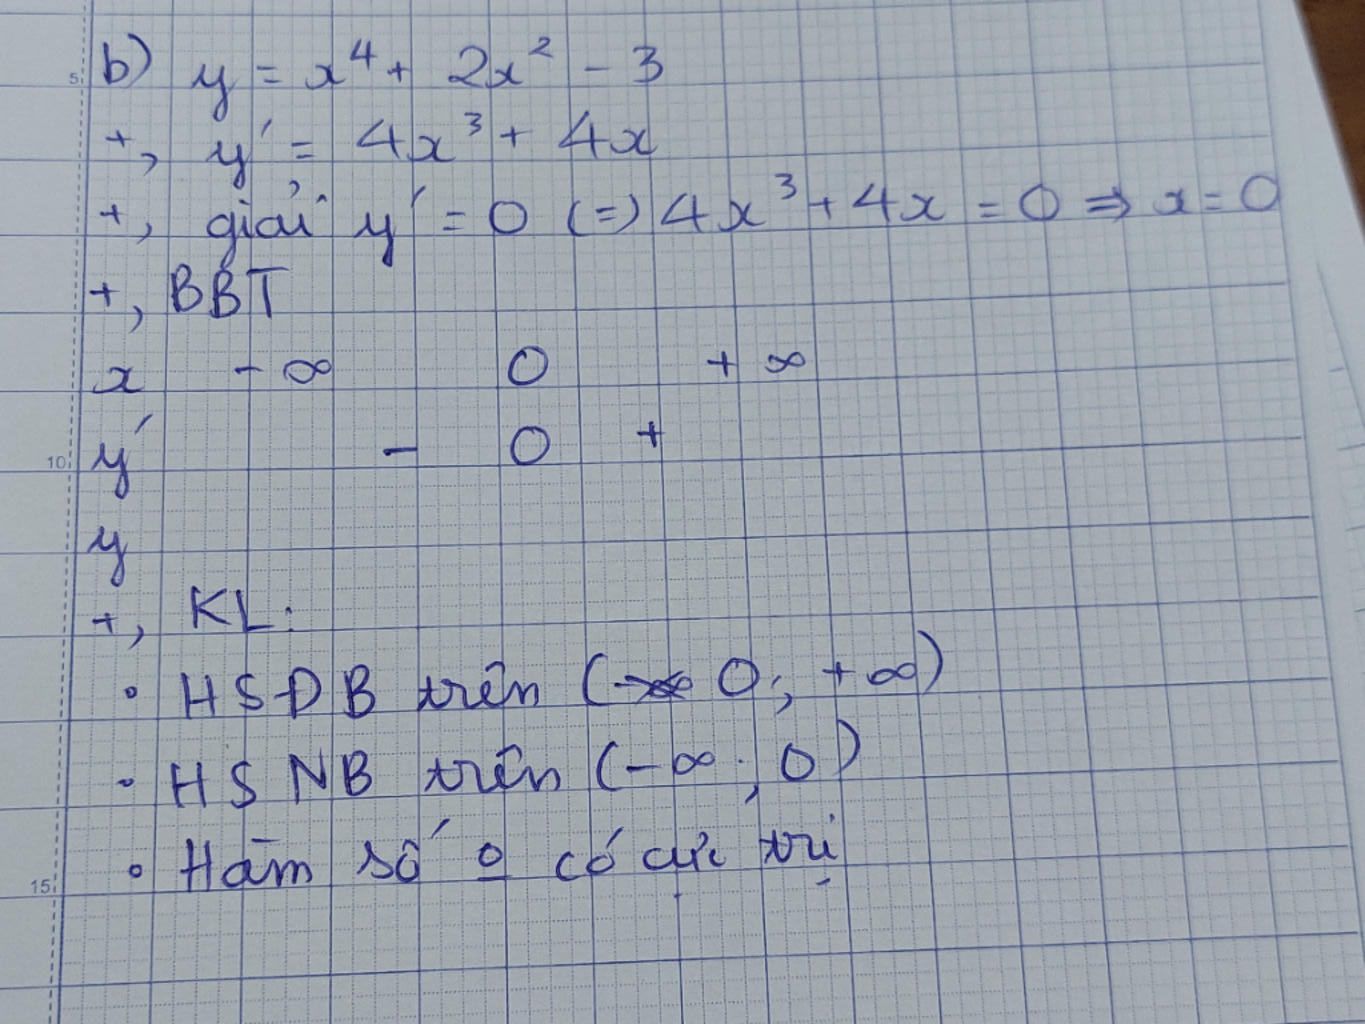 5
b) y = x⁴ + 2x² - 3
+, y' = 4x³ + 4x
+, giải y' = 0 (=) 4x³ + 4x = 0 => x = 0
+, BBT
x -∞ 0 +∞
10 y' - 0 +
y
+, KL:
• HSĐB trên ( 0; +∞)
• HSNB trên (-∞; 0)
15 • Hàm số o có cực trị